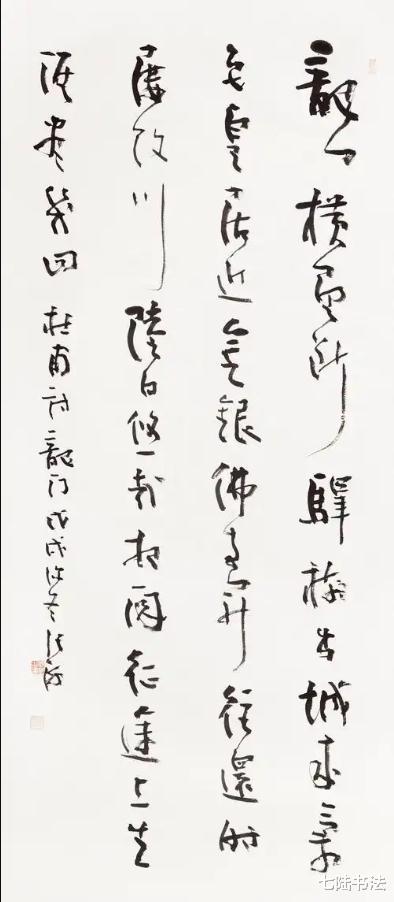 龍門橫野斷驛樹出城來氣
色皇居近金銀佛寺開往還時
屢改川陸日悠哉相閱征途上生
涯盡幾回 杜甫詩龍門戊戌冬
七陆书法